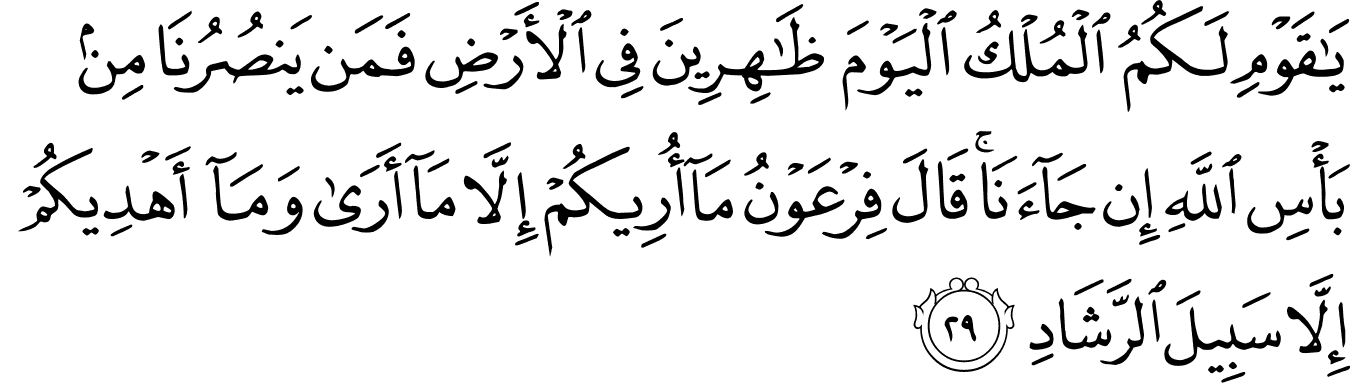 يَٰقَوْمِ لَكُمُ ٱلْمُلْكُ ٱلْيَوْمَ ظَٰهِرِينَ فِى ٱلْأَرْضِ فَمَن يَنصُرُنَا مِنۢ
بَأْسِ ٱللَّهِ إِن جَآءَنَا ۚ قَالَ فِرْعَوْنُ مَآ أُرِيكُمْ إِلَّا مَآ أَرَىٰ وَمَآ أَهْدِيكُمْ
إِلَّا سَبِيلَ ٱلرَّشَادِ ٢٩